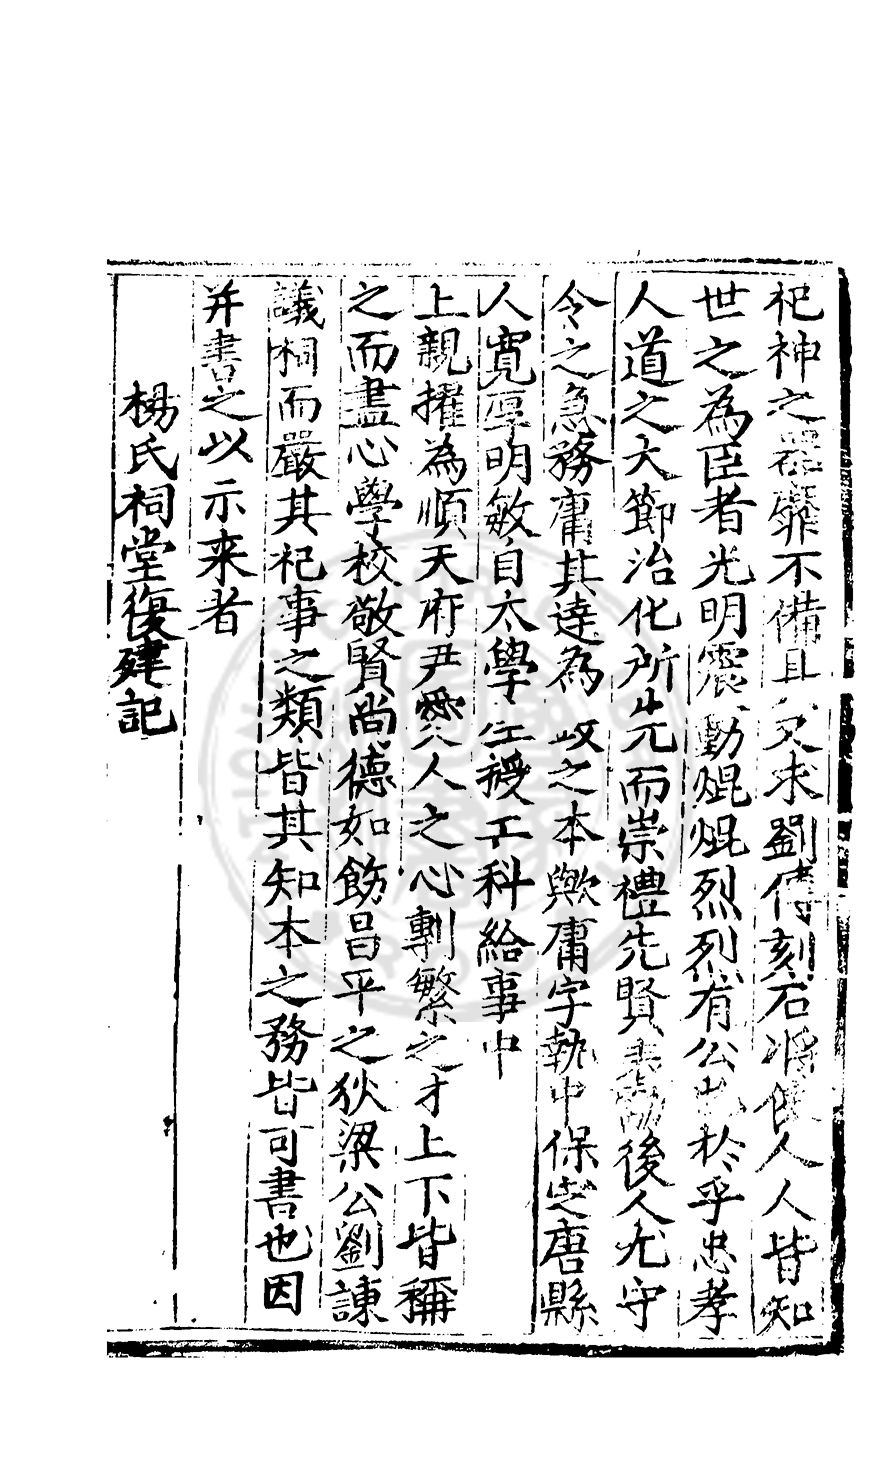 祀神之器靡不備且又求劉傳刻石將使人人皆知
世之為臣者光明震動焜焜烈烈有公也於乎忠孝
人道之大節治化所先而崇禮先賢表勵後人尤守
令之急務庸其達為政之本歟庸字執中保定唐縣
人寬厚明敏自太學生授工科給事中
上親擢為順天府尹愛人之心剸繁之才上下皆稱
之而盡心學校敬賢尚德如飭昌平之狄梁公劉諫
議祠而嚴其祀事之類皆其知本之務皆可書也因
并書之以示来者
楊氏祠堂復建記